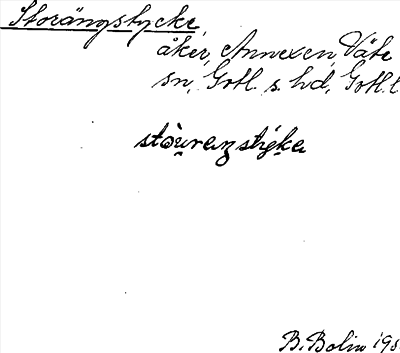 Storängstycke,
åker, Annexen, Väte
sn, Gotl. s. hd, Gotl. l.
stòuranstýka
B. Bolin 19